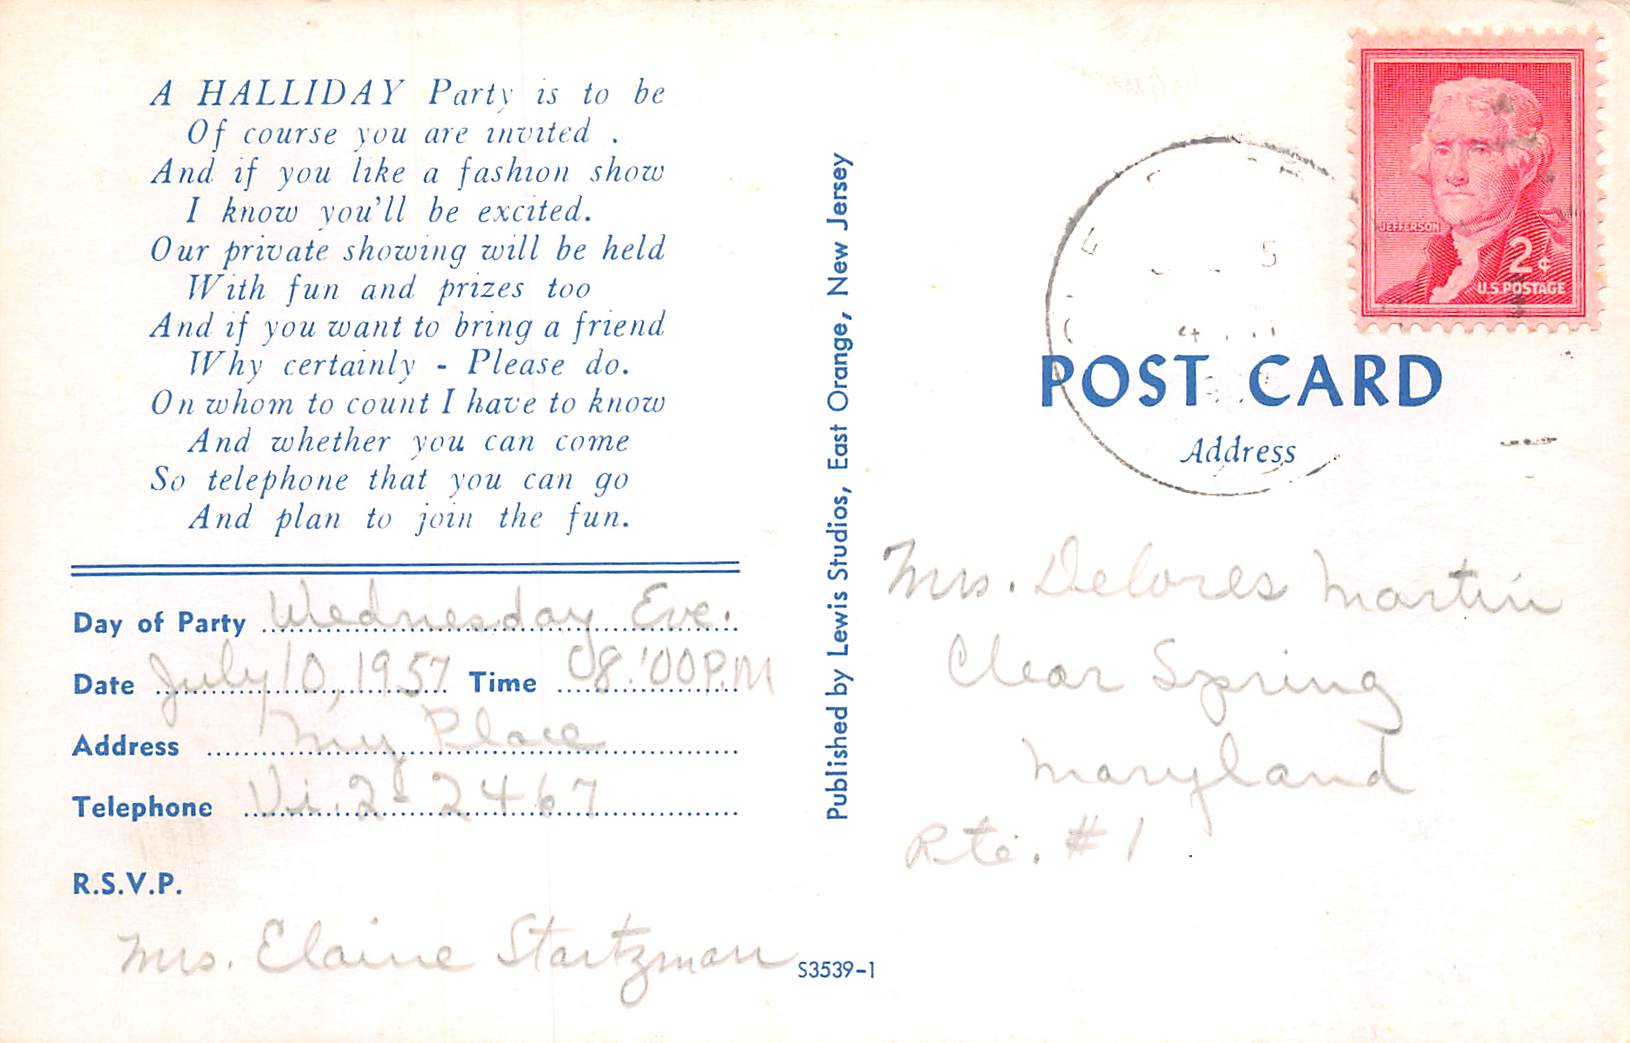 A HALLIDAY Party is to be
Of course you are invited .
And if you like a fashion show
I know you'll be excited.
Our private showing will be held
With fun and prizes too
And if you want to bring a friend
Why certainly - Please do.
On whom to count I have to know
And whether you can come
So telephone that you can go
And plan to join the fun.
Day of Party Wednesday Eve.
Date July 10, 1957 Time 08:00 P.M
Address My Place
Telephone Vi. 2-2467
R.S.V.P.
Mrs. Elaine Startzman
S3539-1
Published by Lewis Studios, East Orange, New Jersey
JEFFERSON
2¢
U.S. POSTAGE
POST CARD
Address
Mrs. Delores Martin
Clear Spring
Maryland
Rte. #1